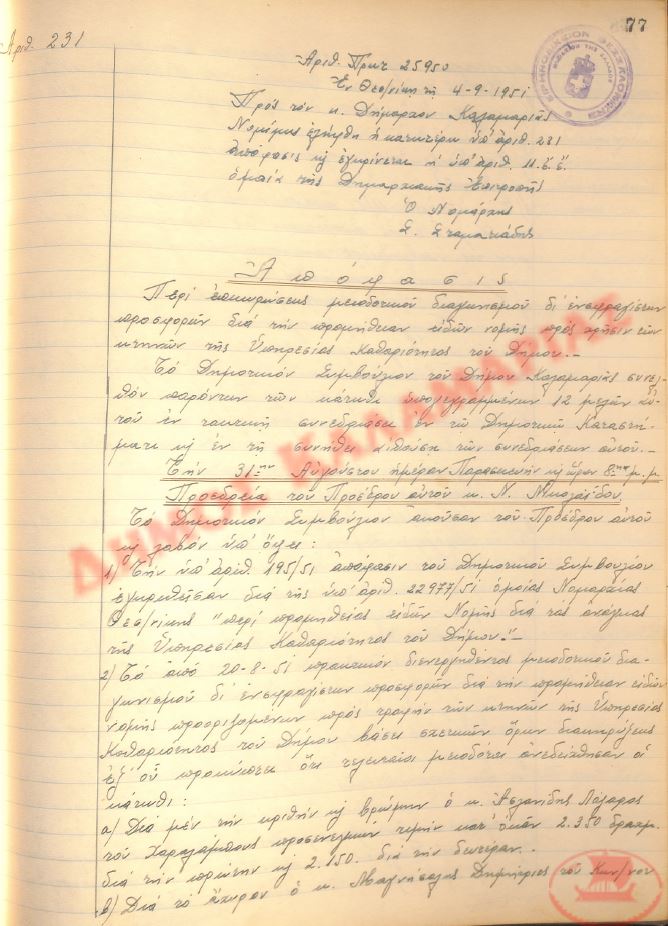 77
Ἀριθ. 231
Ἀριθ. Πρωτ. 25950
Ἐν Θεσ/νίκῃ τῇ 4-9-1951
Πρός τόν κ. Δήμαρχον Καλαμαριᾶς
Νομίμως ἐλήφθη ἡ κατωτέρω ὑπ' ἀριθ. 231
ἀπόφασις κ ἐγκρίνεται ἡ ὑπ' ἀριθ. 11. ἔ.ἔ.
ὁμοία τῆς Δημαρχιακῆς Ἐπιτροπῆς
Ὁ Νομάρχης
Σ. Σταματιάδης
Ἀπόφασις
Περί ἐπικυρώσεως μειοδοτικοῦ διαγωνισμοῦ δι' ἐνσφραγίστων
προσφορῶν διά τήν προμήθειαν εἰδῶν νομῆς πρός χρῆσιν τῶν
κτηνῶν τῆς Ὑπηρεσίας Καθαριότητος τοῦ Δήμου.-
Τό Δημοτικόν Συμβούλιον τοῦ Δήμου Καλαμαριᾶς συνελ-
θόν παρόντων τῶν κάτωθι ὑπογεγραμμένων 12 μελῶν αὐ-
τοῦ ἐν τακτικῇ συνεδριάσει ἐν τῷ Δημοτικῷ Καταστή-
ματι κ ἐν τῇ συνήθει αἰθούσῃ τῶν συνεδριάσεων αὐτοῦ.-
Τήν 31ην Αὐγούστου ἡμέραν Παρασκευήν κ ὥραν 8ην μ.μ
Προεδρεία τοῦ Προέδρου αὐτοῦ κ. Ν. Νικολαΐδου.
Τό Δημοτικόν Συμβούλιον ἀκοῦσαν τοῦ Προέδρου αὐτοῦ
κ λαβόν ὑπ' ὄψει:
1) Τήν ὑπ' ἀριθ. 195/51 ἀπόφασιν τοῦ Δημοτικοῦ Συμβουλίου
ἐγκριθεῖσαν διά τῆς ὑπ' ἀριθ. 22977/51 ὁμοίας Νομαρχίας
Θεσ/νίκης "περί προμηθείας εἰδῶν Νομῆς διά τάς ἀνάγκας
τῆς Ὑπηρεσίας Καθαριότητος τοῦ Δήμου."-
2) Τό ἀπό 20-8-51 πρακτικόν διενεργηθέντος μειοδοτικοῦ δια-
γωνισμοῦ δι' ἐνσφραγίστων προσφορῶν διά τήν προμήθειαν εἰδῶν
νομῆς προοριζομένων πρός τροφήν τῶν κτηνῶν τῆς Ὑπηρεσίας
Καθαριότητος τοῦ Δήμου βάσει σχετικῶν ὅρων διακηρύξεως
ἐξ οὗ προκύπτει ὅτι τελευταῖοι μειοδόται ἀνεδείχθησαν οἱ
κάτωθι:
α) Διά μέν τήν κριθήν κ βρώμην ὁ κ. Ἀσλανίδης Λάζαρος
τοῦ Χαραλάμπους προσενεγκών τιμήν κατ' ὀκᾶν 2.350 δραχμ.
διά τήν πρώτην κ 2.150. διά τήν δευτέραν.
β) Διά τό ἄχυρον ὁ κ. Δημήτριος τοῦ Κων/νου
ΔΗΜΟΣ ΚΑΛΑΜΑΡΙΑΣ